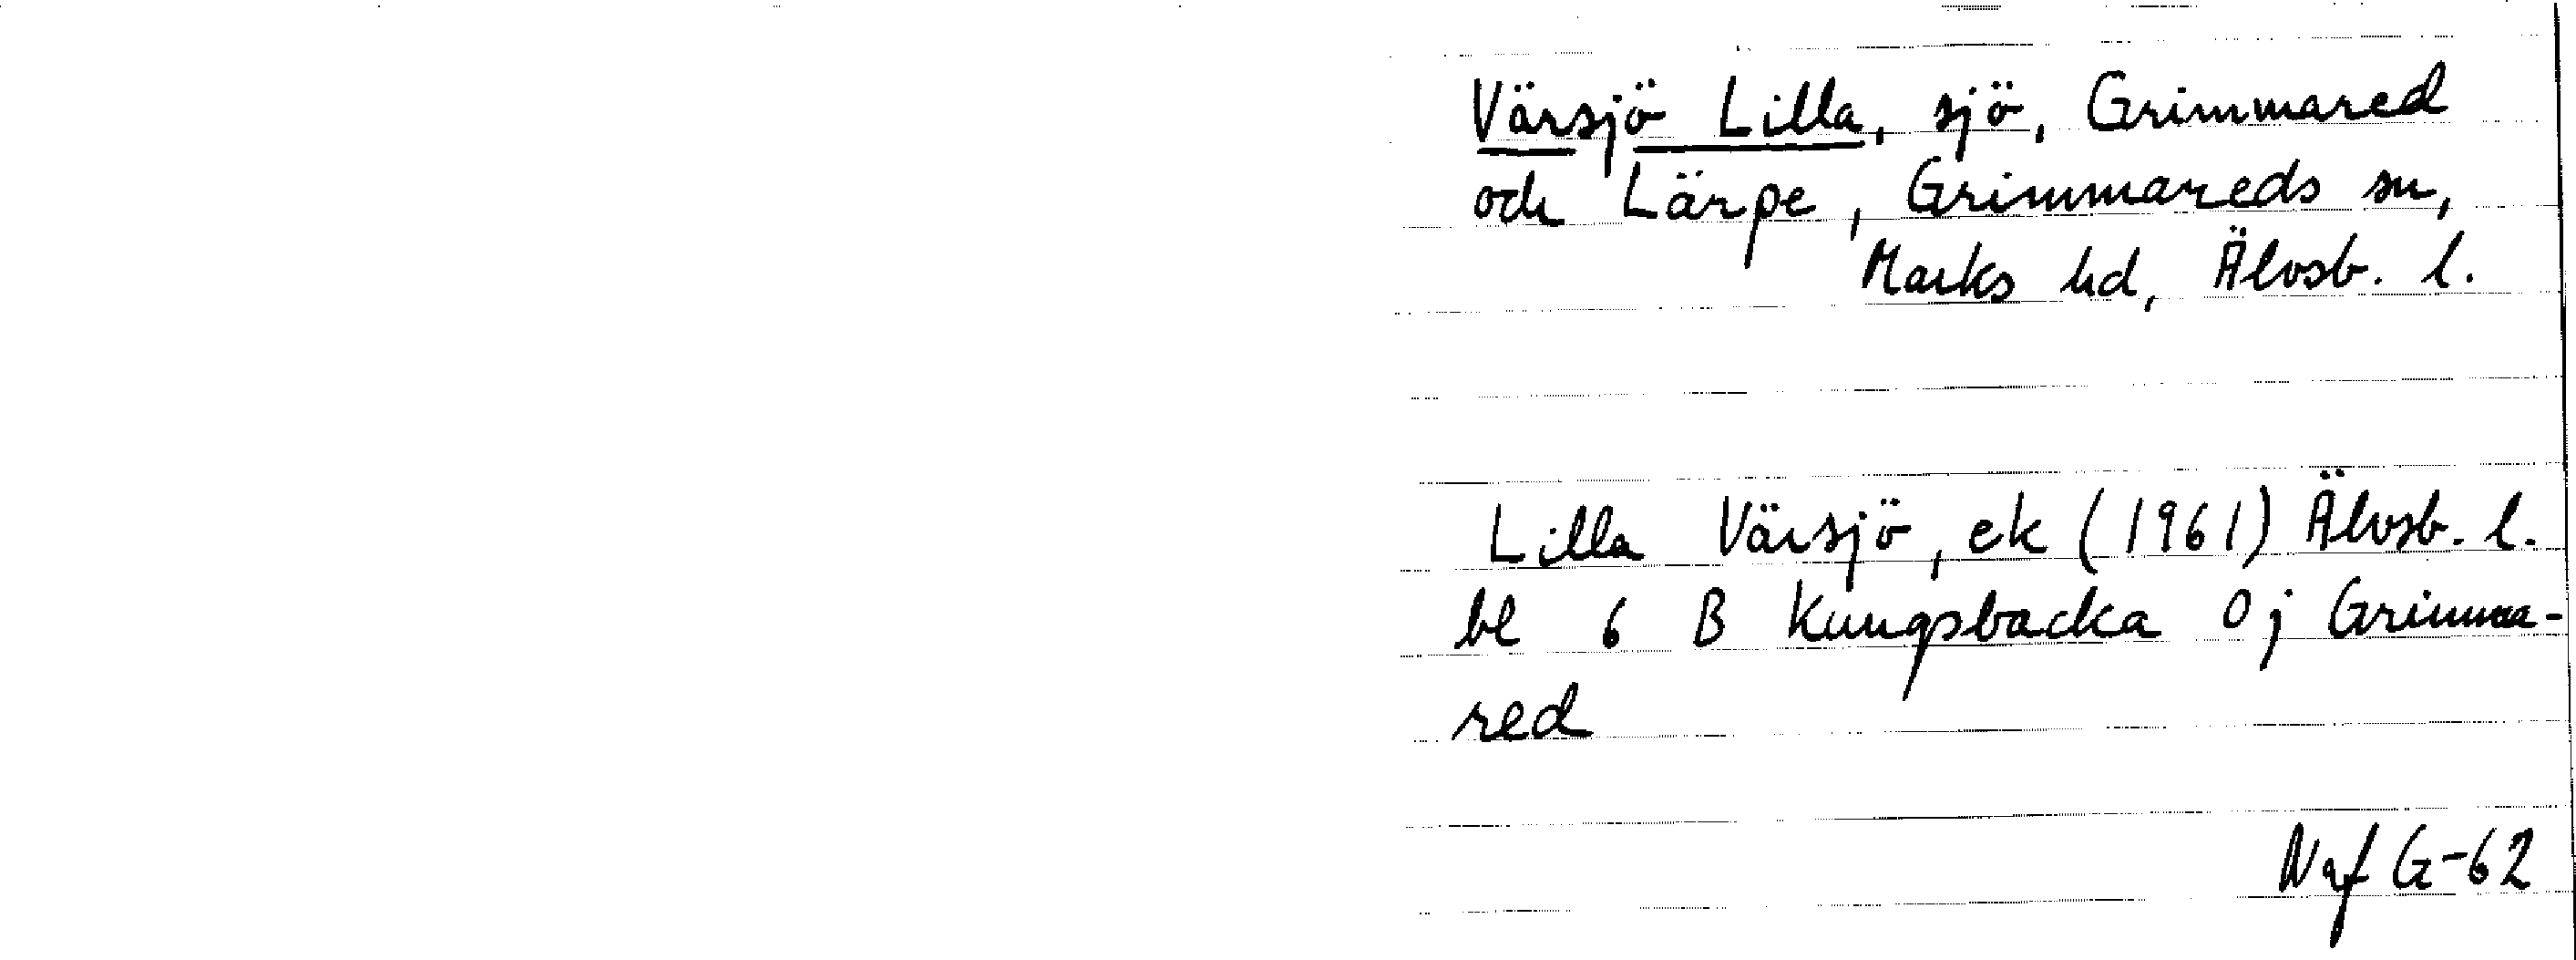 Värsjö Lilla, sjö, Grimmared
och Lärpe, Grimmareds sn,
Marks hd, Älvsb. l.
Lilla Värsjö, ek (1961) Älvsb. l.
bl 6 B Kungsbacka 0j Grimma-
red
Naf G-62